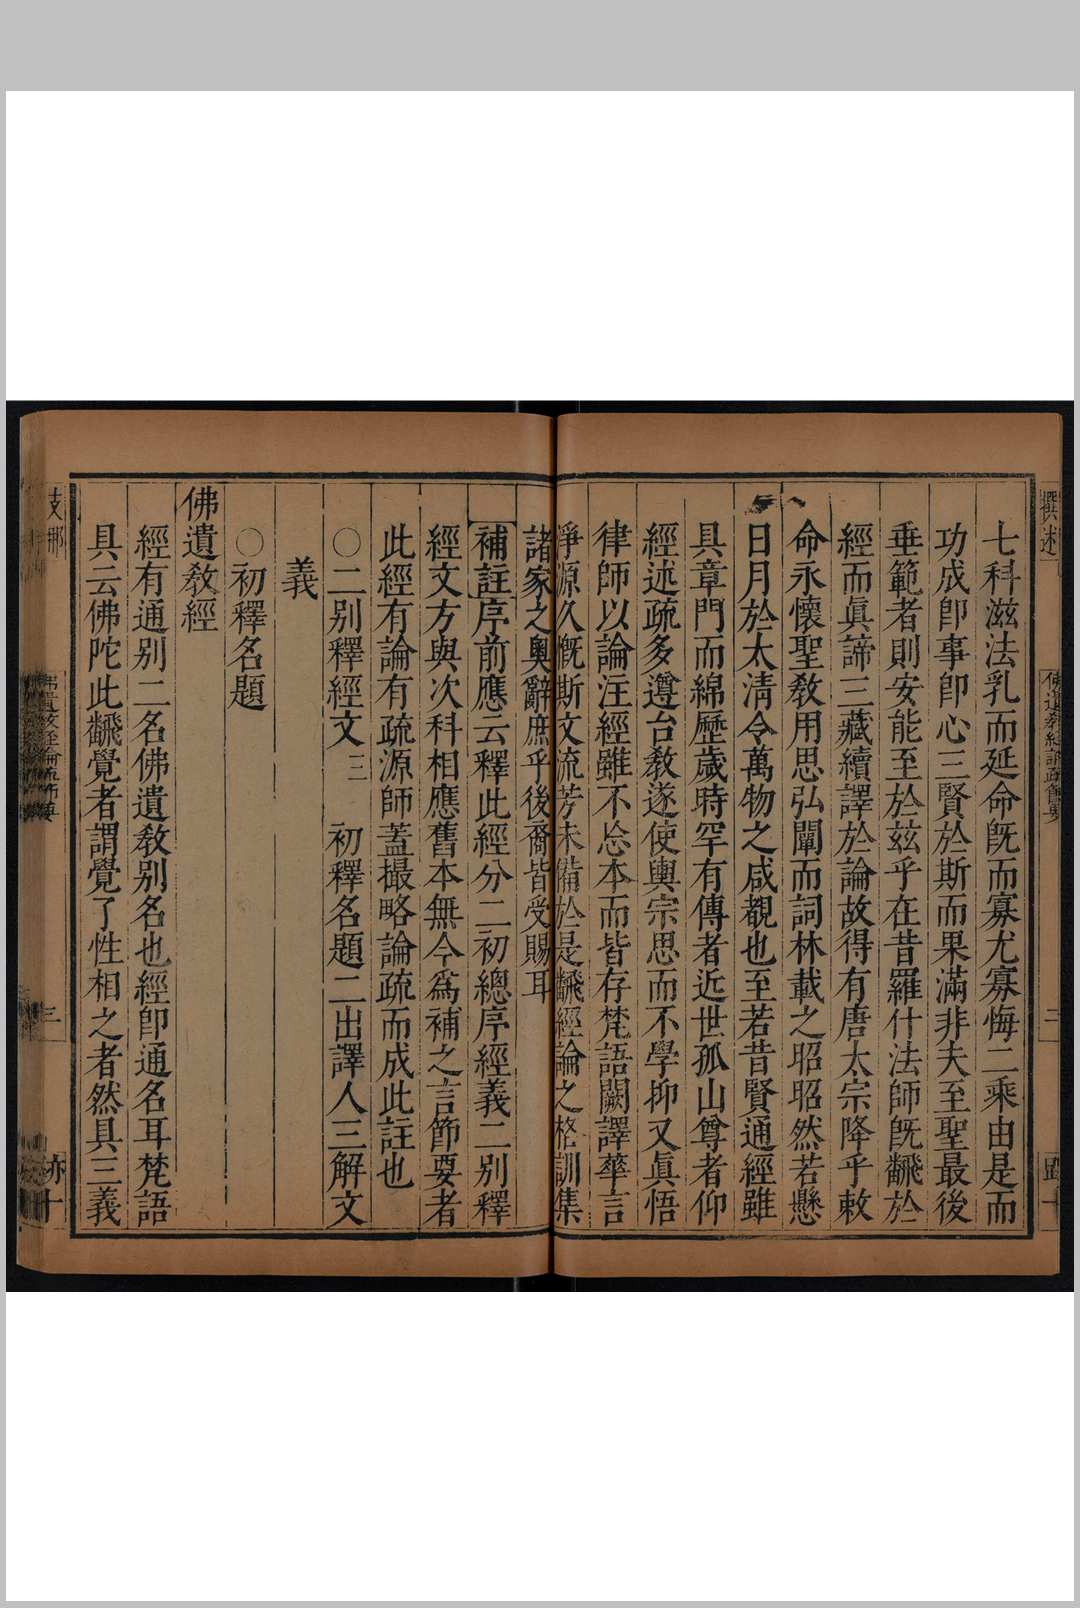 七科滋法乳而延命旣而寡尤寡悔二乘由是而
功成卽事卽心三賢於斯而果滿非夫至聖最後
垂範者則安能至於兹乎在昔羅什法師旣飜於
經而眞諦三藏續譯於論故得有唐太宗降乎敕
命永懷聖敎用思弘闡而詞林載之昭昭然若懸
日月於太清令萬物之咸覩也至若昔賢通經雖
具章門而綿歷歲時罕有傳者近世孤山尊者仰
經述疏多遵台敎遂使輿宗思而不學抑又眞悟
律師以論注經雖不忩本而皆存梵語闕譯華言
淨源久慨斯文流芳未備於是飜經論之格訓集
諸家之奧辭庶乎後裔皆受賜耳
補註序前應云釋此經分二初總序經義二別釋
經文方與次科相應舊本無今爲補之言節要者
此經有論有疏源師蓋撮略論疏而成此註也
○二別釋經文三 初釋名題二出譯人三解文
義
○初釋名題
佛遺敎經
經有通別二名佛遺敎別名也經卽通名耳梵語
具云佛陀此飜覺者謂覺了性相之者然具三義